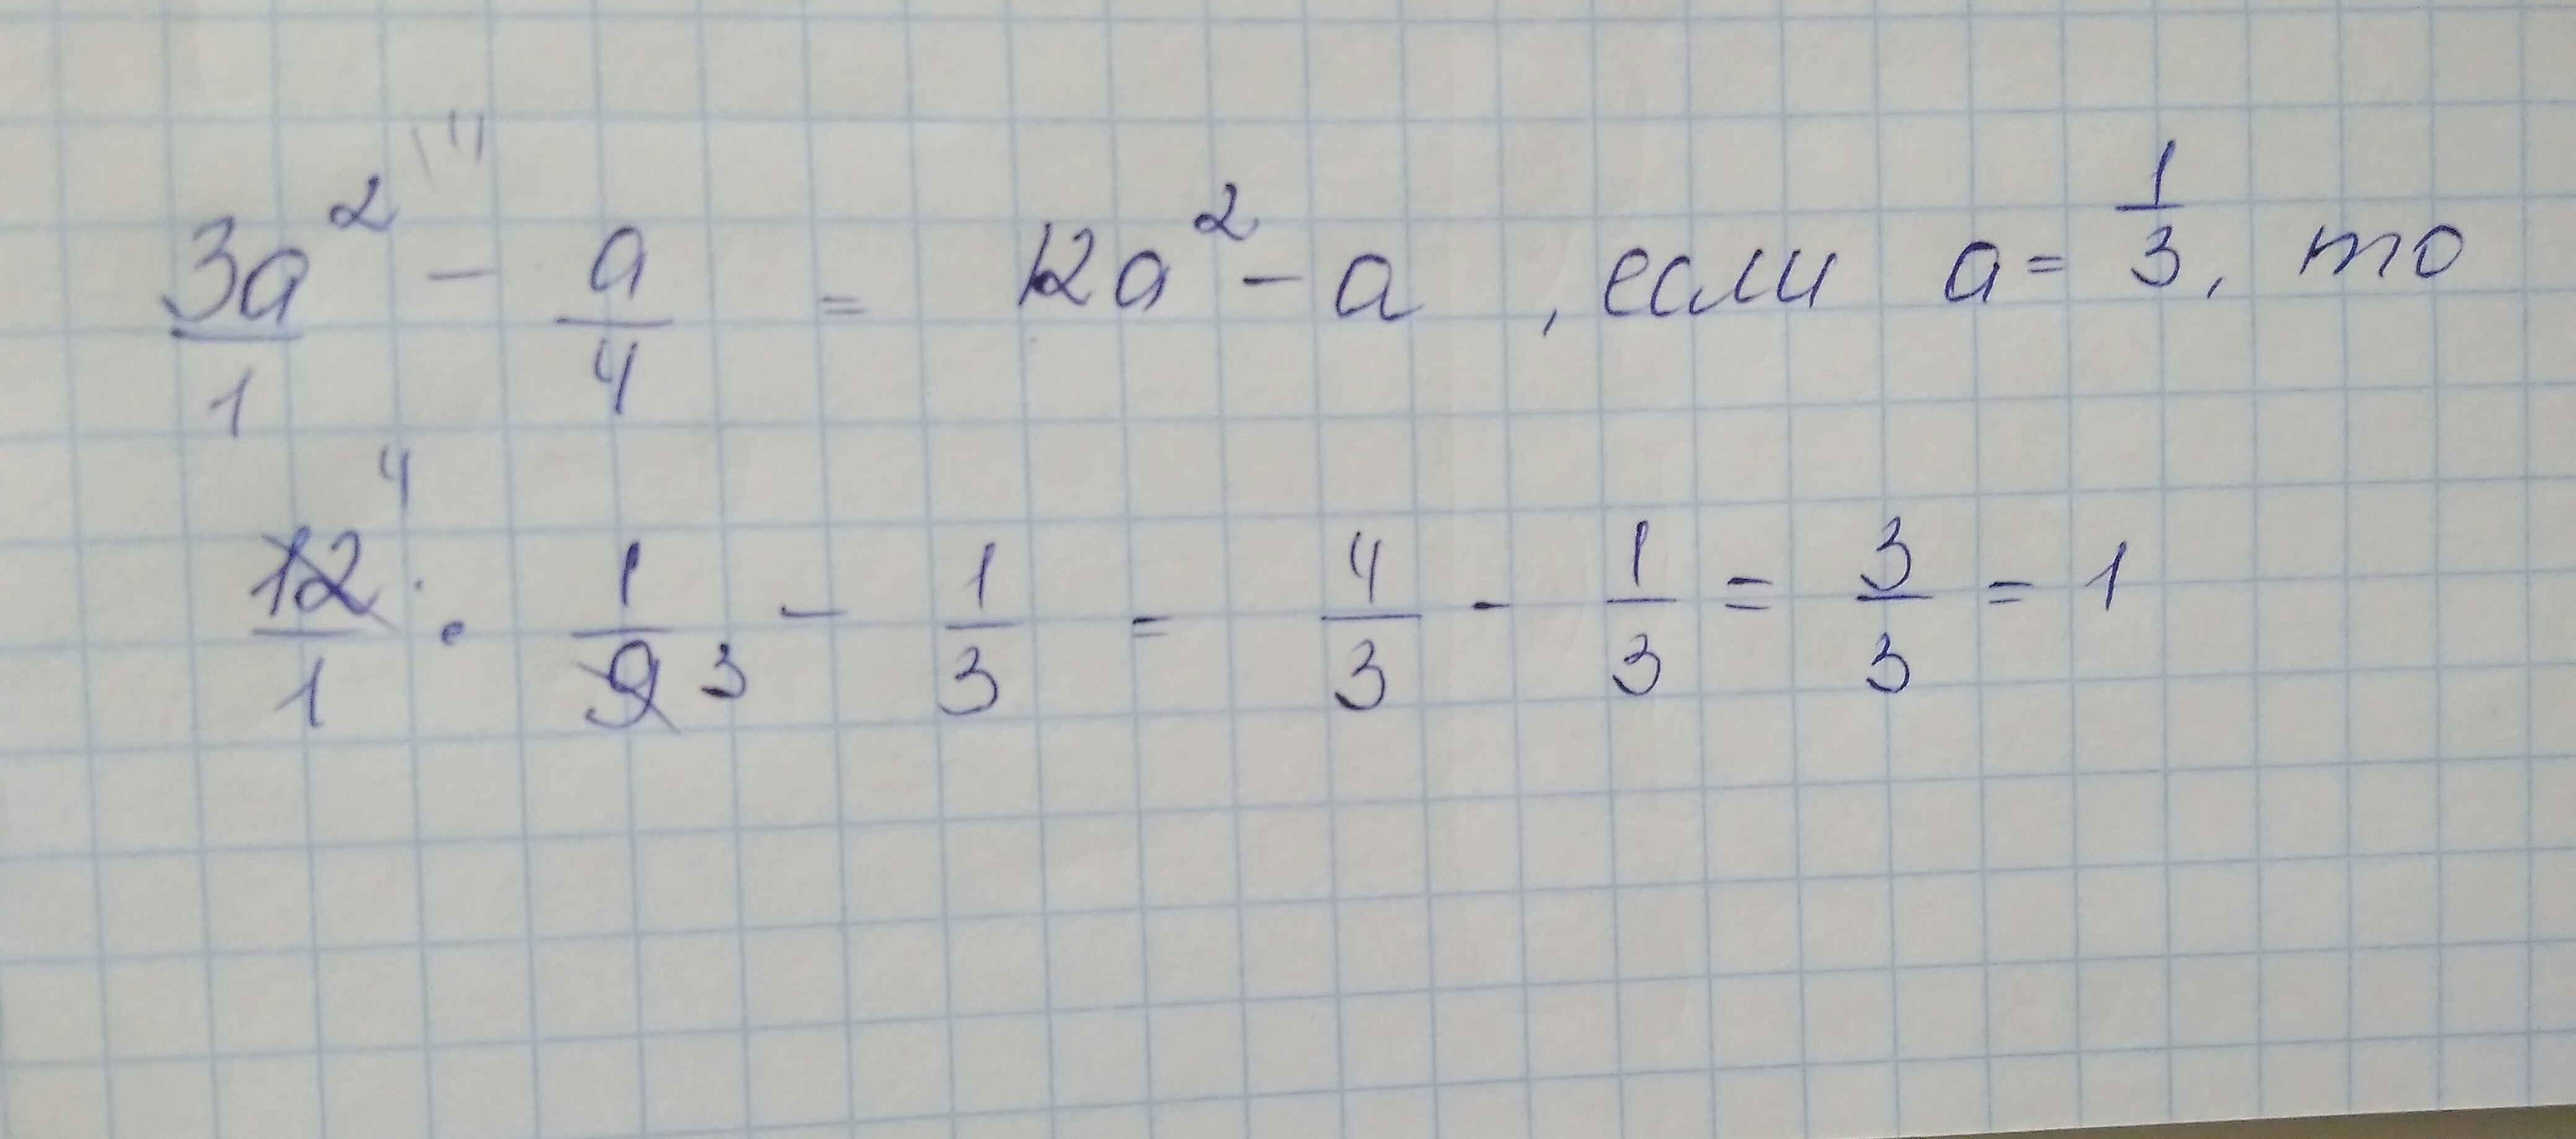 3a²/1 - a/4 = 12a² - a , если a = 1/3, то
12/1 4 · 1/9 3 - 1/3 = 4/3 - 1/3 = 3/3 = 1